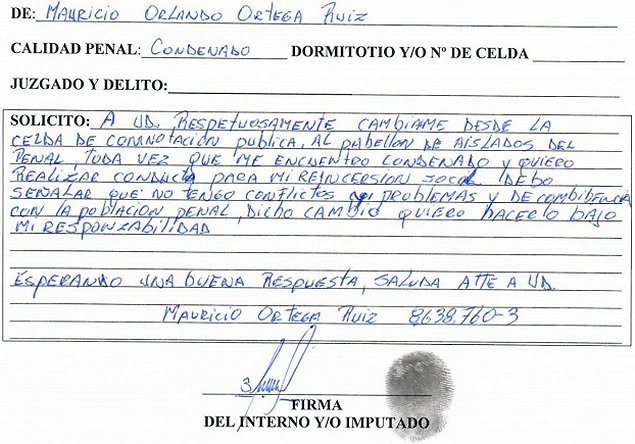 DE: MAURICIO ORLANDO ORTEGA RUIZ
CALIDAD PENAL: CONDENADO DORMITOTIO Y/O Nº DE CELDA
JUZGADO Y DELITO:
SOLICITO: A UD. RESPETUOSAMENTE CAMBIAME DESDE LA
CELDA DE CONNOTACIÓN PUBLICA, AL PABELLON DE AISLADOS DEL
PENAL, TODA VEZ QUE ME ENCUENTRO CONDENADO Y QUIERO
REALIZAR CONDUCTA PARA MI REINCERSION SOCIAL DEBO
SEÑALAR QUE NO TENGO CONFLICTOS NI PROBLEMAS Y DE COMBIBENCIA
CON LA POBLACION PENAL, DICHO CAMBIO QUIERO HACERLO BAJO
MI RESPONZABILIDAD
ESPERANDO UNA BUENA RESPUESTA, SALUDA ATTE A UD.
MAURICIO ORTEGA RUIZ 8638.760-3
FIRMA
DEL INTERNO Y/O IMPUTADO